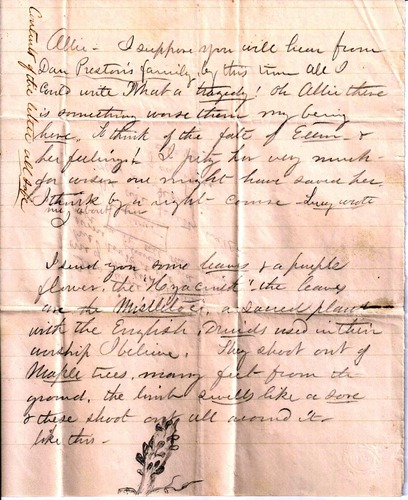 Contents of the letter all safe
Allie - I suppose you will hear from
Dan Preston's family, by this time all I
could write What a tragedy! Oh Allie there
is something worse than my being
here. To think of the fate of &
her feelings I pity her very much -
for wiser one might have saved her.
I think by a right course - Lucy wrote
me about her
I send you some leaves & a purple
flower, the "Hyacinth" - the leaves
are the Misseltoe, a sacred plant
with the English, Druids used in their
worship I believe. They shoot out of
Maple trees, many feet from the
ground, the limb swells like a sore
& these shoot out all around it
like this -